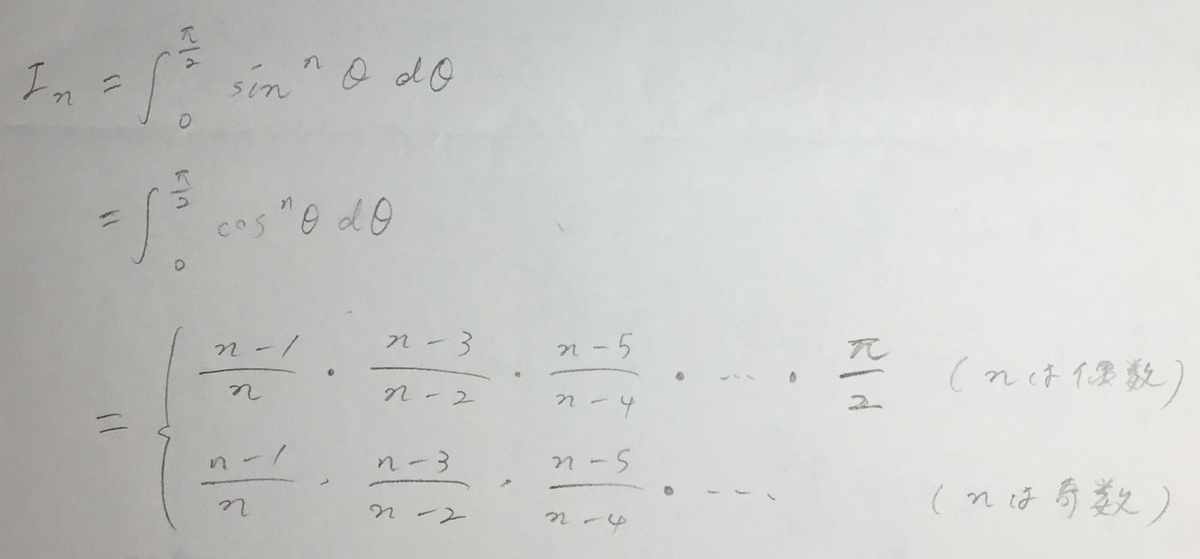 Iₙ = ∫₀^{π/2} sinⁿ θ dθ
= ∫₀^{π/2} cosⁿ θ dθ
= { (n-1)/n · (n-3)/(n-2) · (n-5)/(n-4) · … · π/2 (nは偶数)
(n-1)/n · (n-3)/(n-2) · (n-5)/(n-4) · … (nは奇数)